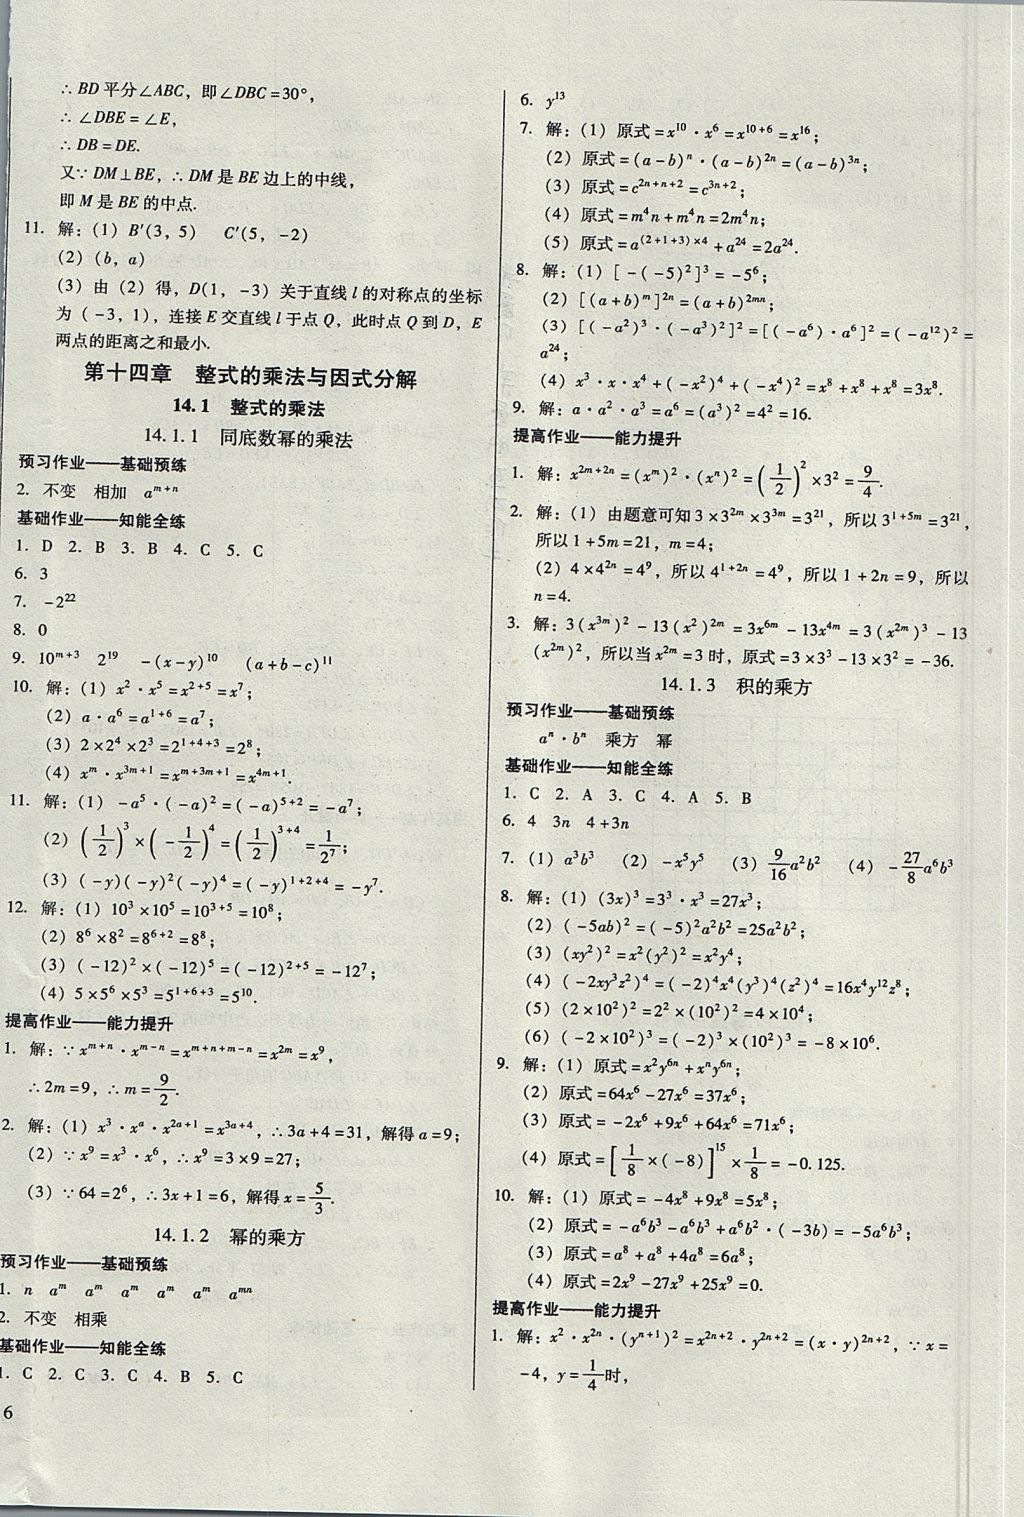 ∴ BD 平分∠ABC，即∠DBC=30°，
∴ ∠DBE=∠E，
∴ DB=DE.
又∵ DM⊥BE，∴ DM 是 BE 边上的中线，
即 M 是 BE 的中点.
11. 解：(1) B′(3，5)　C′(5，-2)
(2)（b，a）
(3) 由（2）得，D(1，-3) 关于直线 l 的对称点的坐标
为（-3，1），连接 E 交直线 l 于点 Q，此时点 Q 到 D，E
两点的距离之和最小.
第十四章　整式的乘法与因式分解
14.1　整式的乘法
14.1.1　同底数幂的乘法
预习作业——基础预练
2. 不变　相加　a^{m+n}
基础作业——知能全练
1. D 2. B 3. B 4. C 5. C
6. 3
7. -2^{22}
8. 0
9. 10^{m+3}　2^{19}　-(x-y)^{10}　(a+b-c)^{11}
10. 解：(1) x^2·x^5=x^{2+5}=x^7；
(2) a·a^6=a^{1+6}=a^7；
(3) 2×2^4×2^3=2^{1+4+3}=2^8；
(4) x^m·x^{3m+1}=x^{m+3m+1}=x^{4m+1}.
11. 解：(1) -a^5·(-a)^2=(-a)^{5+2}=-a^7；
(2) (1/2)^3×(-1/2)^4=(1/2)^{3+4}=1/2^7；
(3) (-y)(-y)^2(-y)^4=(-y)^{1+2+4}=-y^7.
12. 解：(1) 10^3×10^5=10^{3+5}=10^8；
(2) 8^6×8^2=8^{6+2}=8^8；
(3) (-12)^2×(-12)^5=(-12)^{2+5}=-12^7；
(4) 5×5^6×5^3=5^{1+6+3}=5^{10}.
提高作业——能力提升
1. 解：∵ x^{m+n}·x^{m-n}=x^{m+n+m-n}=x^{2m}=x^9，
∴ 2m=9，∴ m=9/2.
2. 解：(1) x^3·x^a·x^{2a+1}=x^{3a+4}，∴ 3a+4=31，解得 a=9；
(2) ∵ x^9=x^3·x^6，∴ x^9=3×9=27；
(3) ∵ 64=2^6，∴ 3x+1=6，解得 x=5/3.
14.1.2　幂的乘方
预习作业——基础预练
1. n　a^m　a^m　a^m　a^m　a^m　a^{mn}
2. 不变　相乘
基础作业——知能全练
1. C 2. C 3. C 4. B 5. C
6
6. y^{13}
7. 解：(1) 原式=x^{10}·x^6=x^{10+6}=x^{16}；
(2) 原式=(a-b)^n·(a-b)^{2n}=(a-b)^{3n}；
(3) 原式=c^{2n+n+2}=c^{3n+2}；
(4) 原式=m^4n+m^4n=2m^4n；
(5) 原式=a^{(2+1+3)×4}+a^{24}=2a^{24}.
8. 解：(1) [-(-5)^2]^3=-5^6；
(2) [(a+b)^m]^{2n}=(a+b)^{2mn}；
(3) [(-a^2)^3·(-a^3)^2]^2=[(-a^6)·a^6]^2=(-a^{12})^2=
a^{24}；
(4) x^3·x·x^4+(-x^2)^4+(-x^4)^2=x^8+x^8+x^8=3x^8.
9. 解：a·a^2·a^3=a^6=(a^3)^2=4^2=16.
提高作业——能力提升
1. 解：x^{2m+2n}=(x^m)^2·(x^n)^2=(1/2)^2×3^2=9/4.
2. 解：(1) 由题意可知 3×3^{2m}×3^{3m}=3^{21}，所以 3^{1+5m}=3^{21}，
所以 1+5m=21，m=4；
(2) 4×4^{2n}=4^9，所以 4^{1+2n}=4^9，所以 1+2n=9，所以
n=4.
3. 解：3(x^{3m})^2-13(x^2)^{2m}=3x^{6m}-13x^{4m}=3(x^{2m})^3-13
(x^{2m})^2，所以当 x^{2m}=3 时，原式=3×3^3-13×3^2=-36.
14.1.3　积的乘方
预习作业——基础预练
a^n·b^n　乘方　幂
基础作业——知能全练
1. C 2. A 3. C 4. A 5. B
6. 4　3n　4+3n
7. (1) a^3b^3　(2) -x^5y^5　(3) 9/16 a^2b^2　(4) -27/8 a^6b^3
8. 解：(1) (3x)^3=3^3·x^3=27x^3；
(2) (-5ab)^2=(-5)^2a^2b^2=25a^2b^2；
(3) (xy^2)^2=x^2(y^2)^2=x^2y^4；
(4) (-2xy^3z^2)^4=(-2)^4x^4(y^3)^4(z^2)^4=16x^4y^{12}z^8；
(5) (2×10^2)^2=2^2×(10^2)^2=4×10^4；
(6) (-2×10^2)^3=(-2)^3×(10^2)^3=-8×10^6.
9. 解：(1) 原式=x^2y^{6n}+x^ny^{6n}；
(2) 原式=64x^6-27x^6=37x^6；
(3) 原式=-2x^6+9x^6+64x^6=71x^6；
(4) 原式=[1/8×(-8)]^{15}×1/8=-0.125.
10. 解：(1) 原式=-4x^8+9x^8=5x^8；
(2) 原式=-a^6b^3-a^6b^3+a^6b^2·(-3b)=-5a^6b^3；
(3) 原式=a^8+a^8+4a^8=6a^8；
(4) 原式=2x^9-27x^9+25x^9=0.
提高作业——能力提升
1. 解：x^2·x^{2n}·(y^{n+1})^2=x^{2n+2}·y^{2n+2}=(x·y)^{2n+2}，∵ x=
-4，y=1/4时，